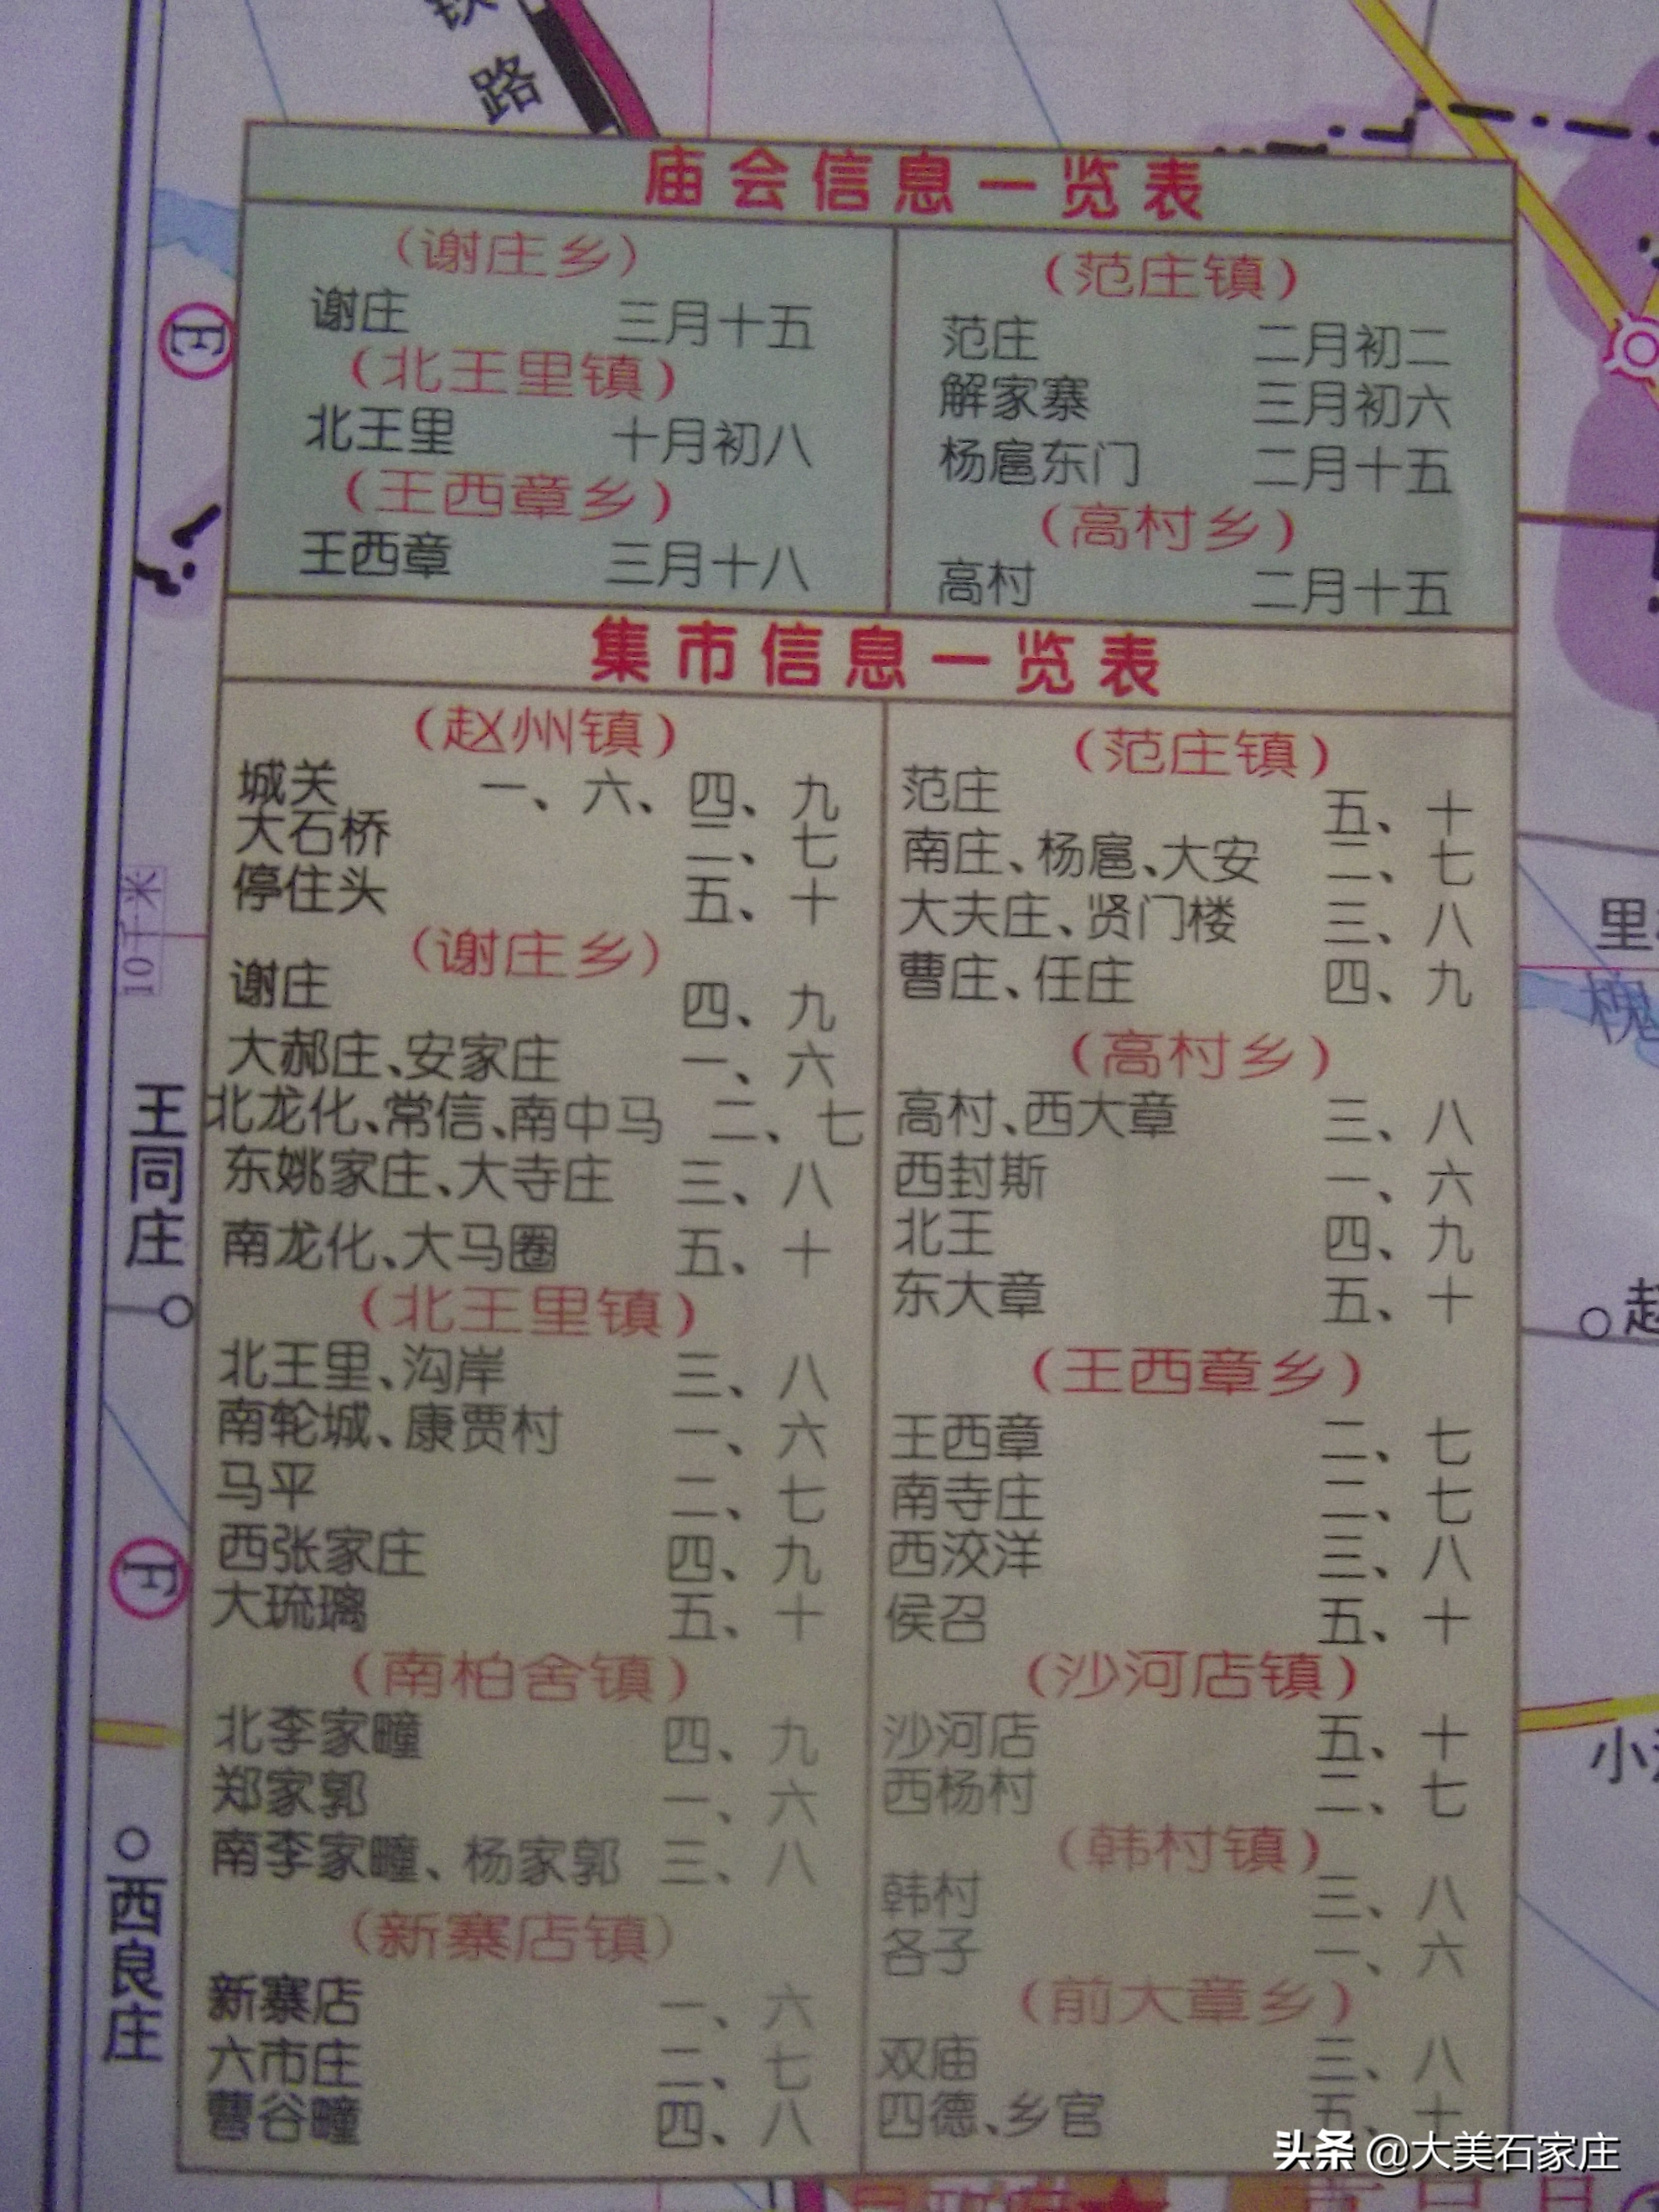 路
庙会信息一览表
（谢庄乡）
谢庄 三月十五
（北王里镇）
北王里 十月初八
（王西章乡）
王西章 三月十八
（范庄镇）
范庄 二月初二
解家寨 三月初六
杨扈东门 二月十五
（高村乡）
高村 二月十五
集市信息一览表
（赵州镇）
城关 一、六、四、九
大石桥 二、七
停住头 五、十
（谢庄乡）
谢庄 四、九
大郝庄、安家庄 一、六
北龙化、常信、南中马 二、七
东姚家庄、大寺庄 三、八
南龙化、大马圈 五、十
（北王里镇）
北王里、沟岸 三、八
南轮城、康贾村 一、六
马平 二、七
西张家庄 四、九
大琉璃 五、十
（南柏舍镇）
北李家疃 四、九
郑家郭 一、六
南李家疃、杨家郭 三、八
（新寨店镇）
新寨店 一、六
六市庄 二、七
曹谷疃 四、八
（范庄镇）
范庄 五、十
南庄、杨扈、大安 二、七
大夫庄、贤门楼 三、八
曹庄、任庄 四、九
（高村乡）
高村、西大章 三、八
西封斯 一、六
北王 四、九
东大章 五、十
（王西章乡）
王西章 二、七
南寺庄 二、七
西洨洋 三、八
侯召 五、十
（沙河店镇）
沙河店 五、十
西杨村 二、七
（韩村镇）
韩村 三、八
各子 一、六
（前大章乡）
双庙 三、八
四德、乡官 五、十
E
10千米
王同庄
F
西良庄
里
槐
赵
小
头条 @大美石家庄